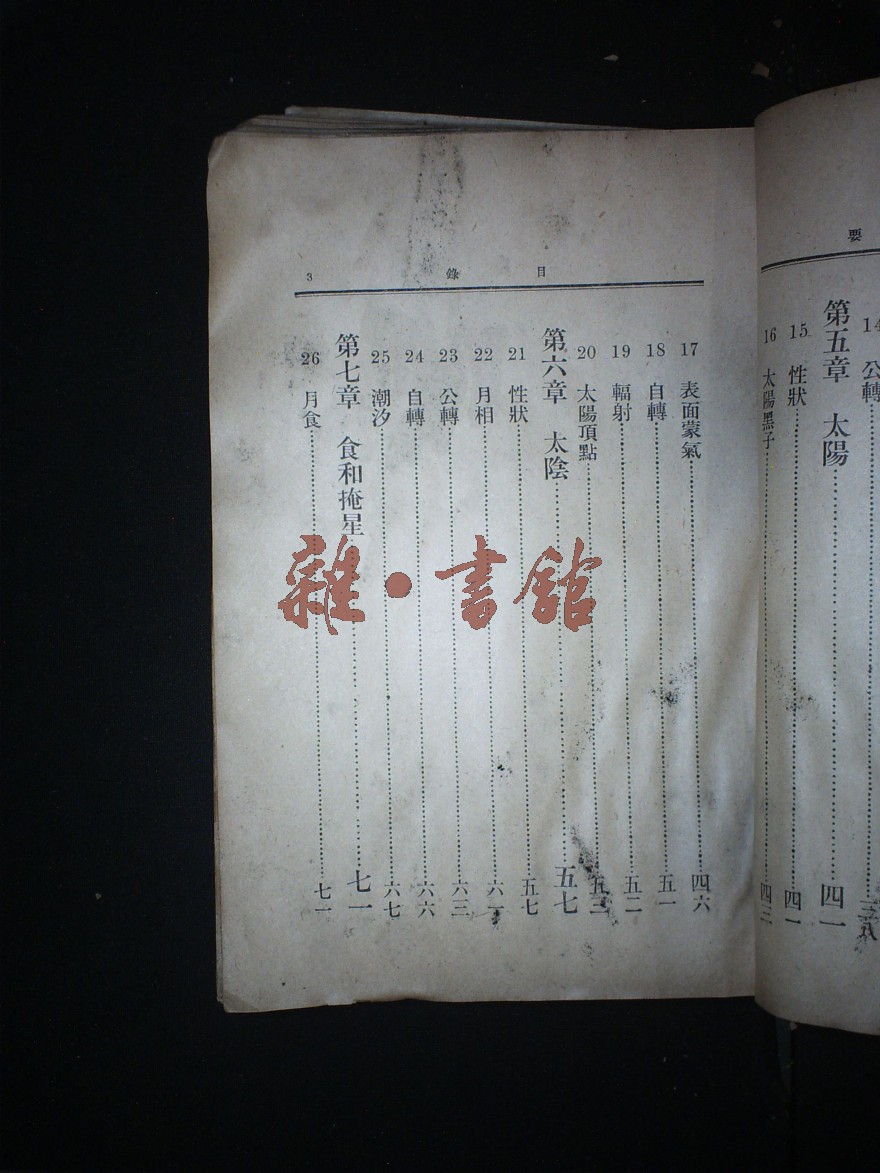 要
14 公轉 三八
第五章 太陽 四一
15 性狀 四一
16 太陽黑子 四三
目錄 3
17 表面蒙氣 四六
18 自轉 五一
19 輻射 五二
20 太陽頂點
第六章 太陰 五七
21 性狀 五七
22 月相 六一
23 公轉 六三
24 自轉 六六
25 潮汐 六七
第七章 食和掩星 七一
26 月食 七一
雜·書舘